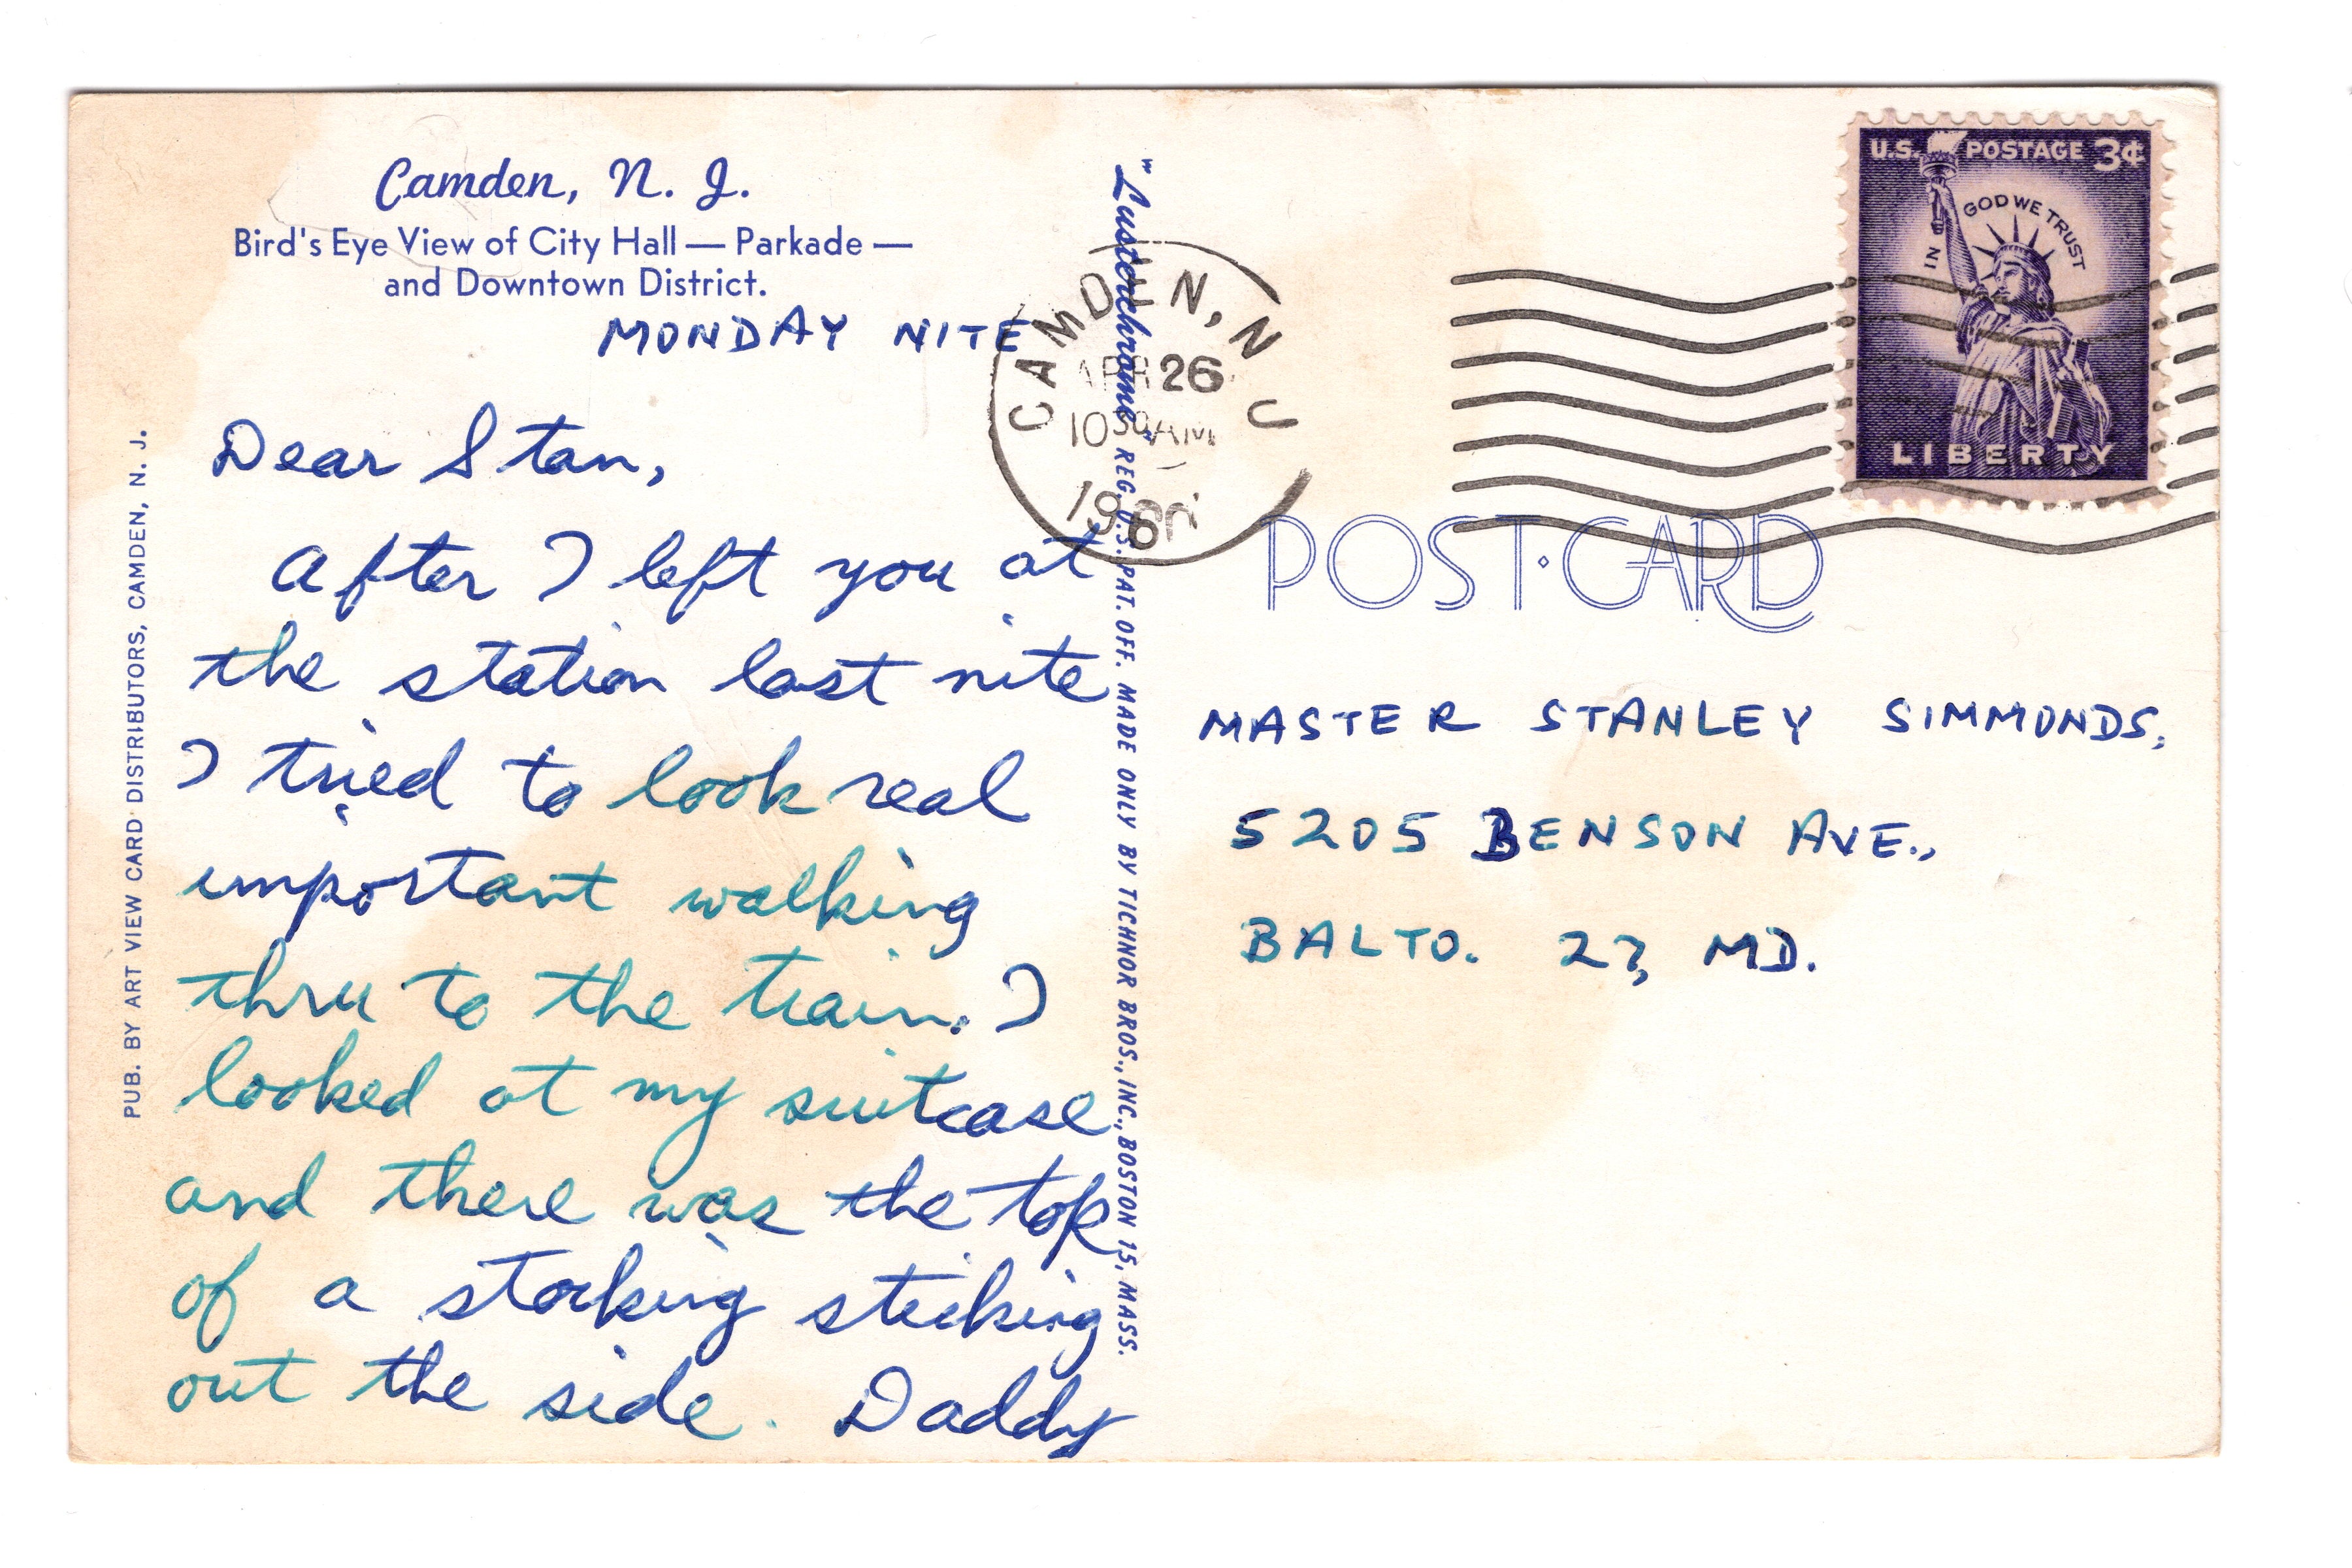 Camden, N. J.
Bird's Eye View of City Hall — Parkade —
and Downtown District.
MONDAY NITE
Dear Stan,
After I left you at
the station last nite
I tried to look real
important walking
thru to the train. I
looked at my suitcase
and there was the top
of a stocking sticking
out the side. Daddy
PUB. BY ART VIEW CARD DISTRIBUTORS, CAMDEN, N. J.
"Lusterchrome" REG. U.S. PAT. OFF. MADE ONLY BY TICHNOR BROS., INC., BOSTON 15, MASS.
CAMDEN, N J
APR 26
10 30 AM
1960
U.S. POSTAGE 3¢
IN GOD WE TRUST
LIBERTY
POST·CARD
MASTER STANLEY SIMMONDS,
5205 BENSON AVE.,
BALTO. 27, MD.